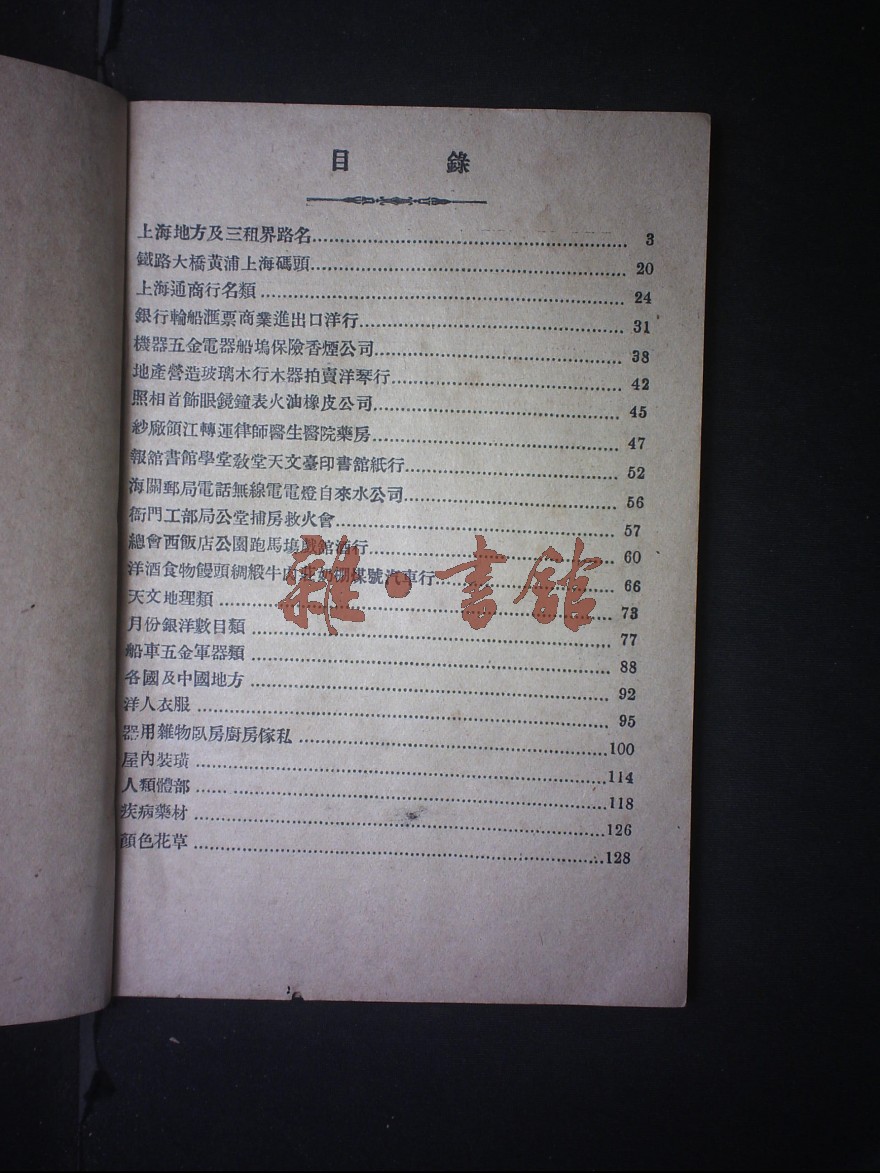 目 錄
上海地方及三租界路名 3
鐵路大橋黃浦上海碼頭 20
上海通商行名類 24
銀行輪船滙票商業進出口洋行 31
機器五金電器船塢保險香煙公司 38
地產營造玻璃木行木器拍賣洋琴行 42
照相首飾眼鏡鐘表火油橡皮公司 45
紗廠領江轉運律師醫生醫院藥房 47
報舘書館學堂敎堂天文臺印書舘紙行 52
海關郵局電話無線電電燈自來水公司 56
衙門工部局公堂捕房救火會 57
總會西飯店公園跑馬塲戲館酒行 60
洋酒食物饅頭綢緞牛肉莊奶棚煤號汽車行 66
天文地理類 73
月份銀洋數目類 77
船車五金軍器類 88
各國及中國地方 92
洋人衣服 95
器用雜物臥房廚房傢私 100
屋內裝璜 114
人類體部 118
疾病藥材 126
顏色花草 128
雜·書舘